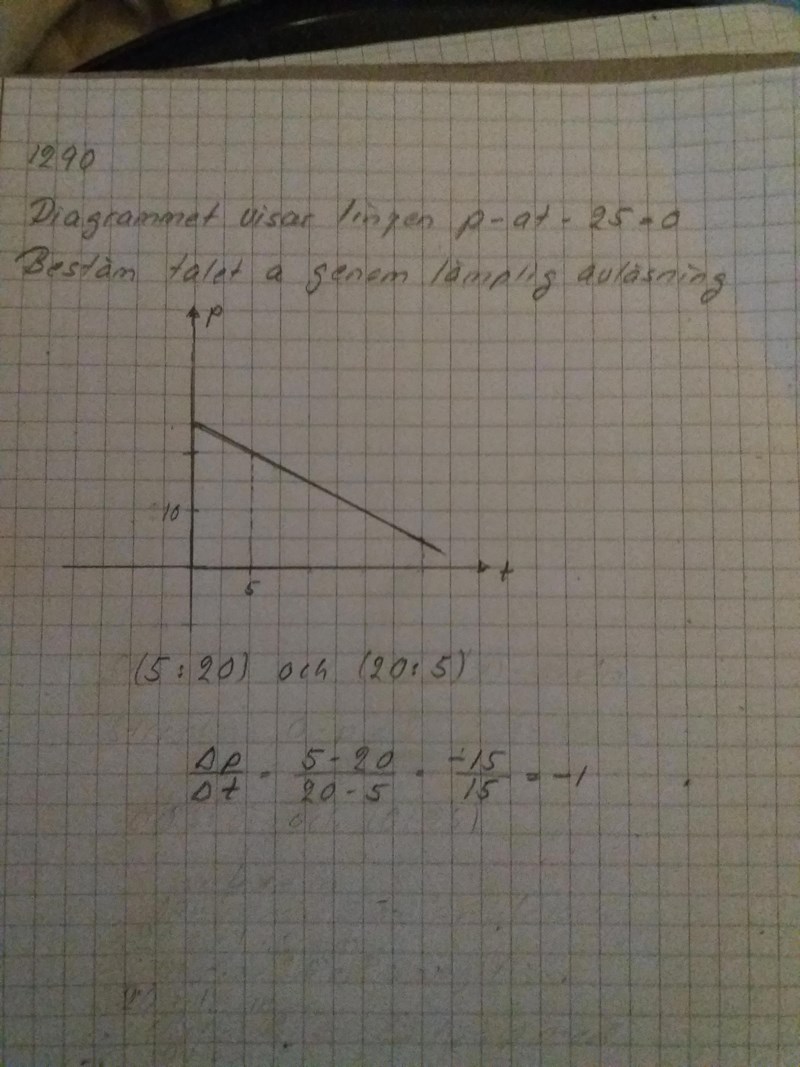 1290
Diagrammet visar linjen p-at-25=0
Bestäm talet a genom lämplig avläsning
p
10
t
5
(5;20) och (20;5)
Δp/Δt = 5-20/20-5 = -15/15 = -1